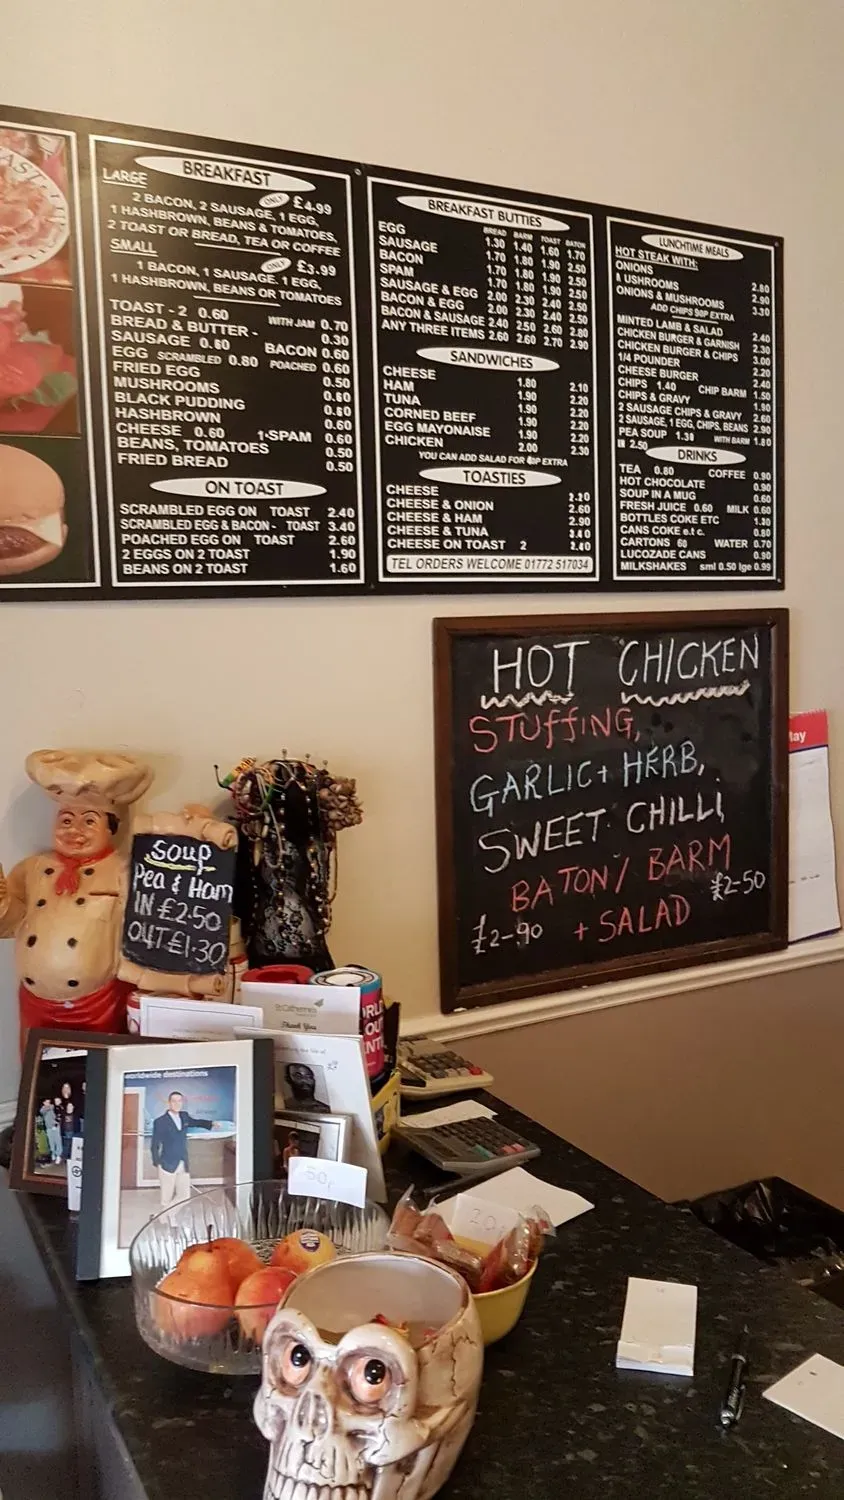 BREAKFAST
LARGE
ONLY £4.99
2 BACON, 2 SAUSAGE, 1 EGG,
1 HASHBROWN, BEANS & TOMATOES,
2 TOAST OR BREAD, TEA OR COFFEE
SMALL
ONLY £3.99
1 BACON, 1 SAUSAGE. 1 EGG,
1 HASHBROWN, BEANS OR TOMATOES
TOAST - 2 0.60 WITH JAM 0.70
BREAD & BUTTER - 0.30
SAUSAGE 0.60 BACON 0.60
EGG SCRAMBLED 0.80 POACHED 0.60
FRIED EGG 0.50
MUSHROOMS 0.60
BLACK PUDDING 0.60
HASHBROWN 0.60
CHEESE 0.60 1-SPAM 0.60
BEANS, TOMATOES 0.50
FRIED BREAD 0.50
ON TOAST
SCRAMBLED EGG ON TOAST 2.40
SCRAMBLED EGG & BACON - TOAST 3.40
POACHED EGG ON TOAST 2.60
2 EGGS ON 2 TOAST 1.90
BEANS ON 2 TOAST 1.60
BREAKFAST BUTTIES
BREAD BARM TOAST BATON
EGG 1.30 1.40 1.60 1.70
SAUSAGE 1.70 1.80 1.90 2.50
BACON 1.70 1.80 1.90 2.50
SPAM 1.70 1.80 1.90 2.50
SAUSAGE & EGG 2.00 2.30 2.40 2.50
BACON & EGG 2.00 2.30 2.40 2.50
BACON & SAUSAGE 2.40 2.50 2.60 2.80
ANY THREE ITEMS 2.60 2.60 2.70 2.90
SANDWICHES
CHEESE 1.80 2.10
HAM 1.90 2.20
TUNA 1.90 2.20
CORNED BEEF 1.90 2.20
EGG MAYONAISE 1.90 2.20
CHICKEN 2.00 2.30
YOU CAN ADD SALAD FOR EXTRA
TOASTIES
CHEESE 2.20
CHEESE & ONION 2.60
CHEESE & HAM 2.90
CHEESE & TUNA
CHEESE ON TOAST 2
TEL ORDERS WELCOME 01772 517034
LUNCHTIME MEALS
HOT STEAK WITH:
ONIONS 2.80
MUSHROOMS 2.90
ONIONS & MUSHROOMS 3.30
ADD CHIPS 90P EXTRA
MINTED LAMB & SALAD 2.40
CHICKEN BURGER & GARNISH 2.30
CHICKEN BURGER & CHIPS 3.00
1/4 POUNDER 2.20
CHEESE BURGER 2.40
CHIPS 1.40 CHIP BARM 1.50
CHIPS & GRAVY 1.90
2 SAUSAGE CHIPS & GRAVY 2.60
2 SAUSAGE, 1 EGG, CHIPS, BEANS 2.90
PEA SOUP 1.30 WITH BARM 1.80
IN 2.50
DRINKS
TEA 0.80 COFFEE 0.90
HOT CHOCOLATE 0.90
SOUP IN A MUG 0.60
FRESH JUICE 0.60 MILK 0.60
BOTTLES COKE ETC
CANS COKE e.t c. 0.80
CARTONS 60 WATER 0.70
LUCOZADE CANS 0.90
MILKSHAKES sml 0.50 lge 0.99
HOT CHICKEN
STUFFING,
GARLIC + HERB,
SWEET CHILLI
BATON / BARM
£2-90 + SALAD £2-50
Soup
Pea & Ham
IN £2.50
OUT £1.30
St Catherine's
Thank You
worldwide destinations
50p
20